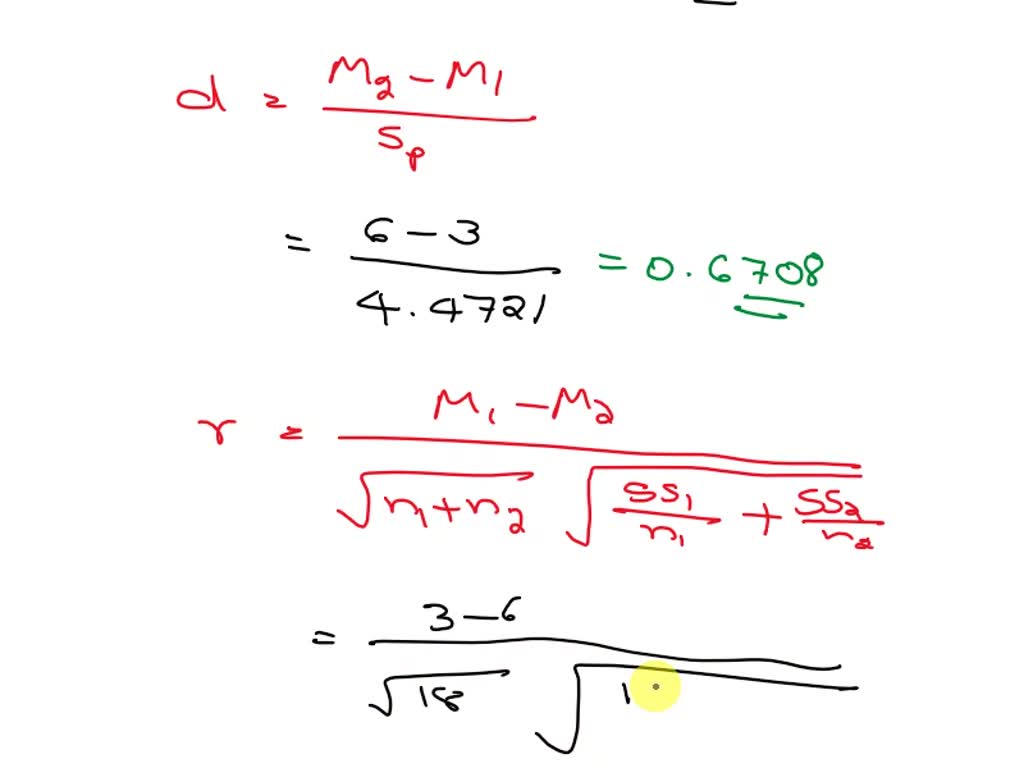 d = M₂ - M₁ / Sp
= 6 - 3 / 4.4721 = 0.6708
r = M₁ - M₂ / √n₁+n₂ √SS₁/n₁ + SS₂/n₂
= 3 - 6 / √18 √1